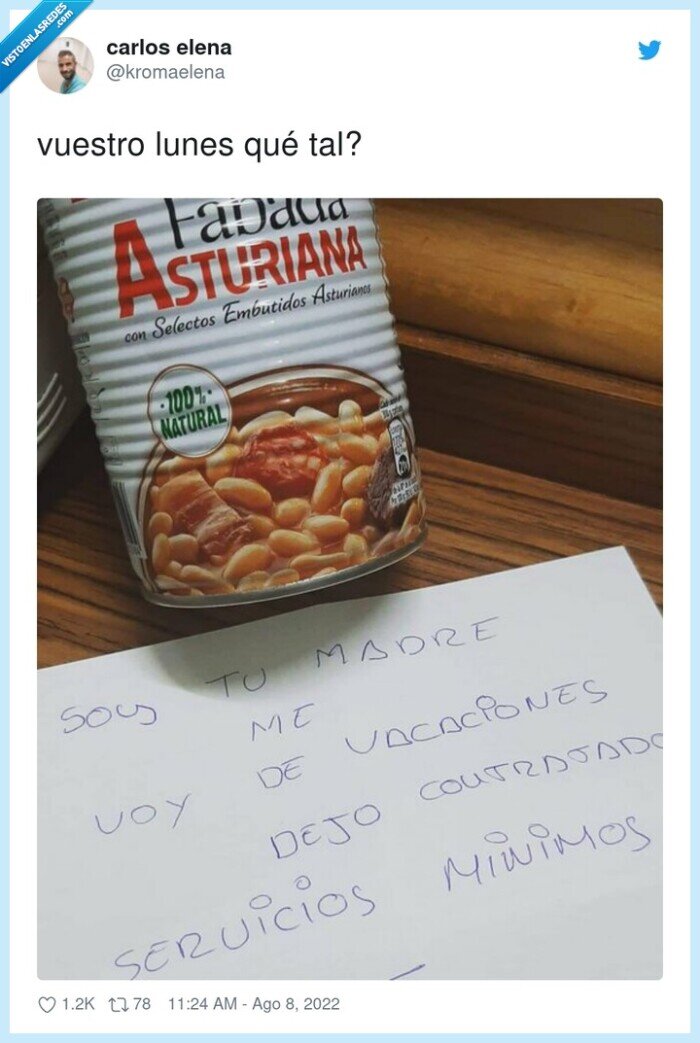 VISTOENLASREDES
.com
carlos elena
@kromaelena
vuestro lunes qué tal?
Fabada
ASTURIANA
con Selectos Embutidos Asturianos
100%
NATURAL
SOY TU MADRE
ME
VOY DE VACACIONES
DEJO CONTRATADO
SERVICIOS MINIMOS
1.2K 78 11:24 AM - Ago 8, 2022